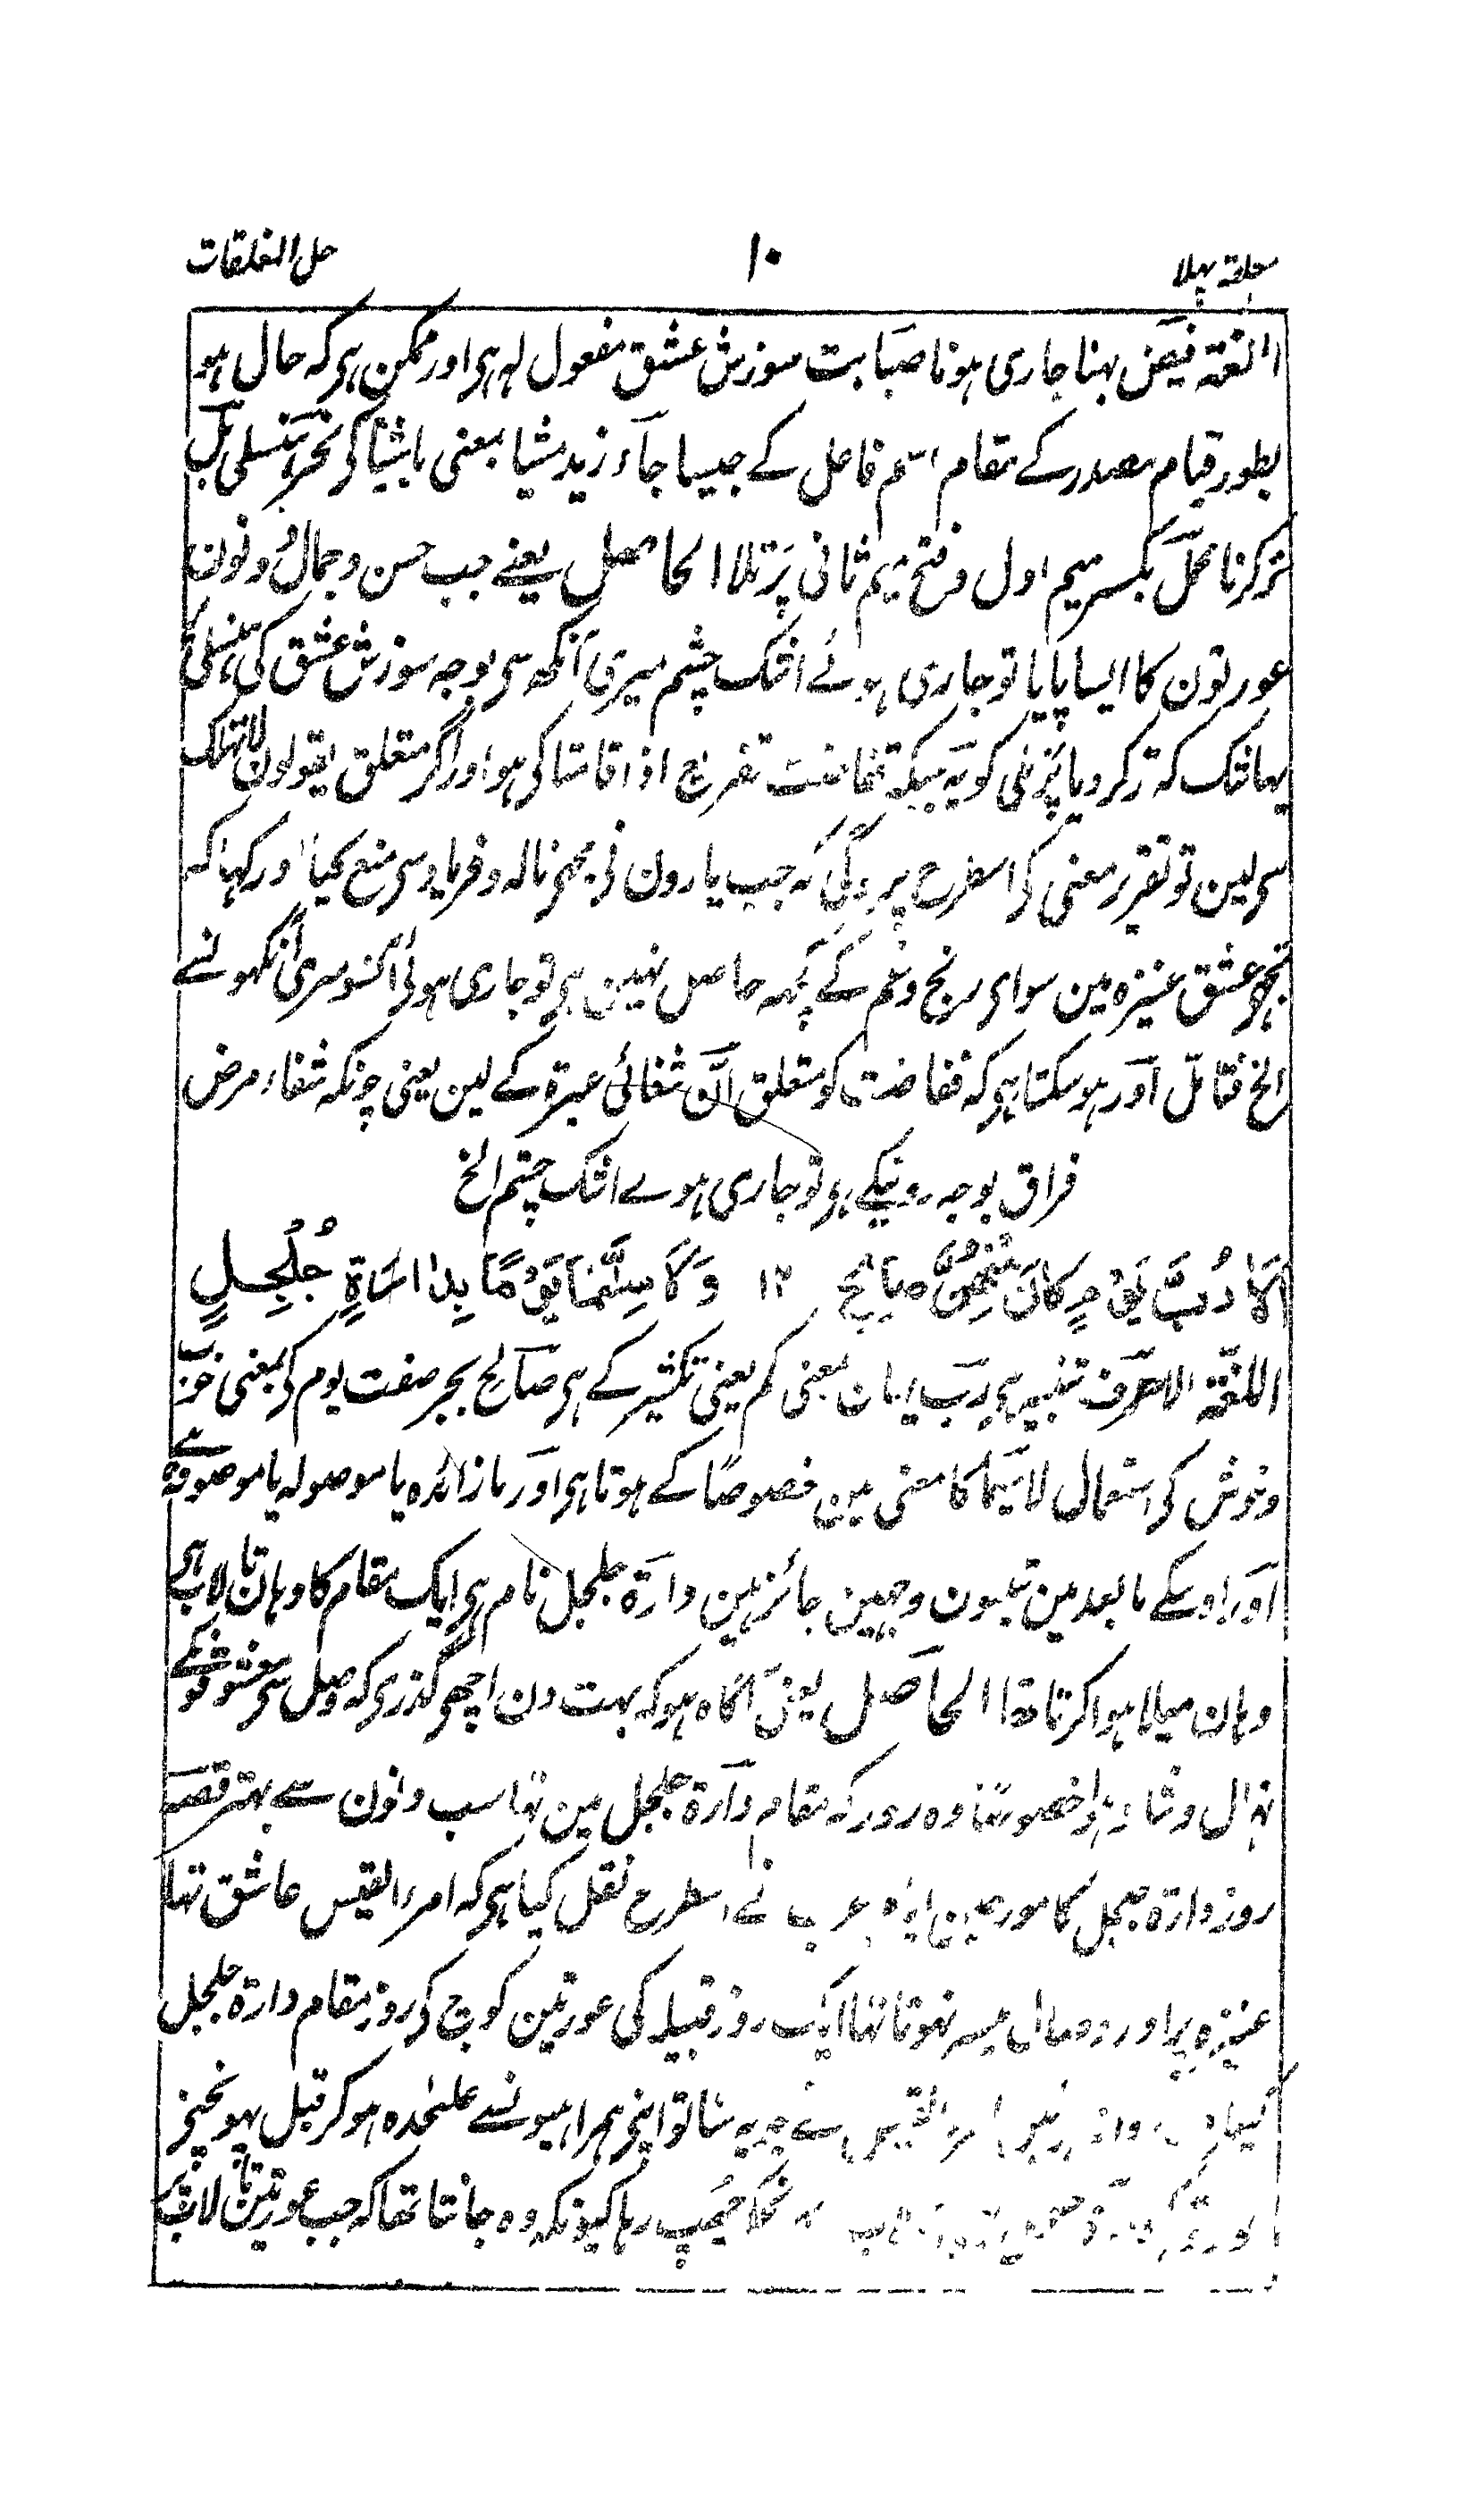 معلقہ پہلا ۱۰ حل المغلقات
اللغۃ فیض بہنا جاری ہونا صبابت سوزش عشق مفعول لہ ہی اور ممکن ہی کہ حال ہو
بطور قیام مصدر کے مقام اسم فاعل کے جیسا جاء زید مشیا بمعنی ماشیا کی نحر ہنسلی بل
تر کرنا محمل بکسر میم اول و فتح میم ثانی پرتلا الحاصل یعنے جب حسن و جمال و نون
عورتون کا ایسا پایا تو جاری ہوئے اشک چشم میری آنکھ سی بوجہ سوزش عشق کی ہنسلی
یہانتک کہ تر کردیا پرتلی کو یہ جبکہ ففاضت تفریع اذا قامتا کی ہو اور اگر متعلق یقولون لا تہلک
سی لین تو تقریر معنی کی اسطرح پر ہوگی کہ جب یارون نی مجہی نالہ و فریاد سی منع کیا اور کہا کہ
تجہی عشق عنیزہ مین سوای رنج و غم کے کچہ حاصل نہین ہی تو جاری ہوئی آنسو میری آنکھونسے
الخ فتامل اور ہوسکتا ہی کہ ففاضت کو متعلق ان شفائی عبرۃ کے لین یعنی چونکہ شفاء مرض
فراق بوجہ رونیکے ہی تو جاری ہوے اشک چشم الخ
اَلَا رُبَّ یَوْمٍ کَانَ مِنْهُنَّ صَالِحٍ ۱۲ وَلَا سِیَّمَا یَوْمًا بِدَارَةِ جُلْجُلٍ
اللغۃ الا حرف تنبیہ ہی رب یہان بمعنی کم یعنی تکثیر کے ہی صالح بجر صفت یوم کی بمعنی خوب
و خوش کی استعمال لاسیما کا معنی مین خصوصًا کے ہوتا ہی اور ما زائدہ یا موصولہ یا موصوفہ ہے
اور اوسکے مابعد مین تینون وجہین جائز ہین دارۃ جلجل نام ہی ایک مقام کا وہان تالاب ہی
وہان میلا ہوا کرتا تھا الحاصل یعنی آگاہ ہو کہ بہت دن اچھی گذری کہ وصل سی معشوقونکے
نہال و شاد ہوا خصوصًا وہ روز کہ مقام دارۃ جلجل مین تہا سب دنون سے بہتر قصہ
روز دارۃ جلجل کا مورخین عرب نے اسطرح نقل کیا ہی کہ امرء القیس عاشق تہا
عنیزہ پر اور وصال میسر نہوتا تہا ایک روز قبیلہ کی عورتین کوچ کی روز مقام دارۃ جلجل
امرء القیس نے جو یہ سنا تو اپنی ہمراہیونسے علیحدہ ہوکر قبل پہونچنے
چھپ رہا کیونکہ وہ جانتا تھا کہ جب عورتین تالاب پر